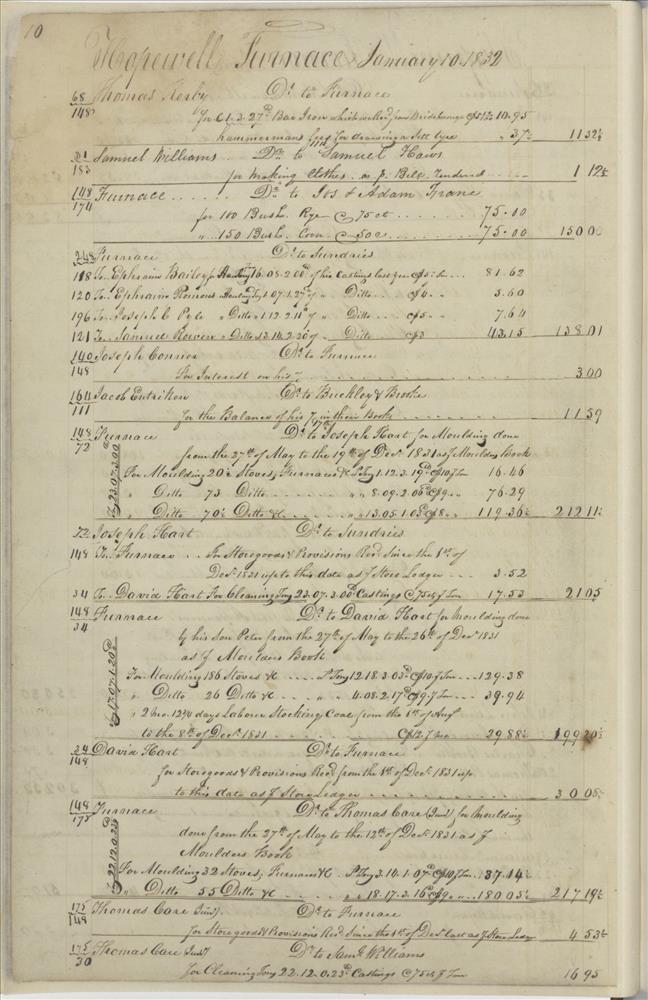 10
Hopewell Furnace January 10. 1832
68 Thomas Kerby Dr. to Furnace
148 for C1.3.27 lb Bar Iron which 10.95
hammermans fees for drawing a Sett tyre " 37½ 11 32½
Samuel Williams Dr. to Samuel Haws
183 for making Clothes as pr. Bill rendered 1 12½
148 Furnace Dr. to Jos & Adam Franc
174 for 100 Bush. Rye @ 75 ct 75.00
" 150 Bush. Corn @ 50 c 75.00 150 00
148 Furnace Dr. to Sundries
118 To Ephraim Bailey for Hauling 16.08.2.00 lb of his castings 81.62
120 To Ephraim " Hauling Ton 1.07.1.27 lb of " Ditto @ $4 5.60
196 To Joseph C Pyle " Ditto 1.12.2.11 lb " Ditto @ $5 7.64
121 To Samuel Rowen " Ditto 13.14.2.20 of " Ditto @ $3 43.15 138 01
140 Joseph Connor Dr. to Furnace
148 For Interest on his 3 00
164 Jacob Entriken Dr. to Buckley & Brooke
111 for the Balance of his in their Book 11 59
148 Furnace Dr. to Joseph Hart for Moulding done
72 from the 27th of May to the 19th of Decr. 1831 as pr Moulders Book
23.07.3.00
For Moulding 20½ Stoves, Furnaces &c. pr Tons 1.12.3.19 lb @ $10 pr Ton 16.46
" Ditto 73 Ditto " " 8.09.2.06 lb @ $9 " 76.29
" Ditto 70½ Ditto &c. " " 13.05.1.03 @ $9 " 119.36½ 212 11½
72 Joseph Hart Dr. to Sundries
148 To Furnace For Storegoods & Provisions Recd. Since the 1st of
Decr. 1831 up to this date as pr Store Ledger 3.52
34 To David Hart For Cleaning Tons 23.07.3.00 Castings @ 75c pr Ton 17.53 21 05
148 Furnace Dr. to David Hart for Moulding done
34 by his Son Peter from the 27th of May to the 26th of Decr 1831
as pr Moulders Book
17.07.1.20
For Moulding 186 Stoves &c pr Tons 12.18.3.03 lb @ $10 pr Ton 129.38
" Ditto 26 Ditto &c " " 4.08.2.17 lb @ $9 pr Ton 39.94
" 2 mo. 12¾ days Labour Stocking Coal from the 1st of Augt
to the 8th of Decr. 1831 @ $12 pr mo 29.88½ 199 20½
34 David Hart Dr. to Furnace
148 for Storegoods & Provisions Recd. from the 1st of Decr. 1831 up
to this date as pr Store Ledger 30 05½
148 Furnace Dr. to Thomas Care (Junr) for Moulding
175 done from the 27th of May to the 12th of Decr 1831 as pr
Moulders Book
22.12.0.23
For Moulding 32 Stoves, Furnaces &c. pr Tons 3.14.1.07 lb @ $10 pr Ton 37.14½
" Ditto 55 Ditto &c " " 18.17.3.16 lb @ $9 " 180.05½ 217 19½
175 Thomas Care (Junr). Dr. to Furnace
148 for Storegoods & Provisions Recd. Since the 1st of Decr. last as pr Store Ledger 4 53½
175 Thomas Care Junr Dr. to Saml. Williams
30 for Cleaning Tons 22.12.0.23 lb Castings @ 75c pr Ton 16 95